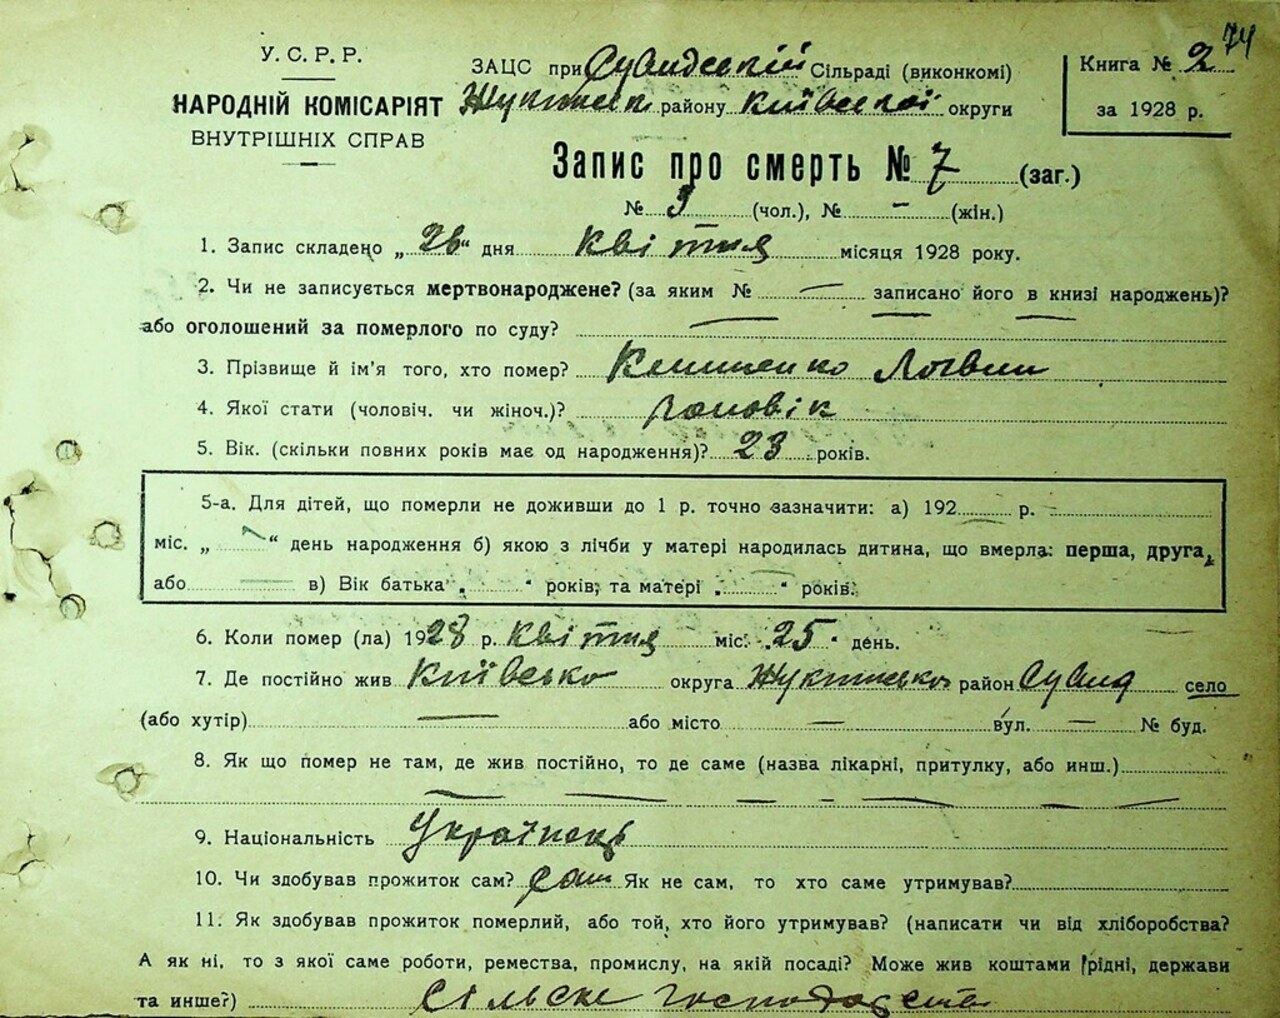 74
У. С. Р. Р.
НАРОДНІЙ КОМІСАРІЯТ
ВНУТРІШНІХ СПРАВ
ЗАЦС при Сувидській Сільраді (виконкомі)
Жукинськ району Київської округи
Книга № 2
за 1928 р.
Запис про смерть № 7 (заг.)
№ 3 (чол.), № – (жін.)
1. Запис складено „26“ дня квітня місяця 1928 року.
2. Чи не записується мертвонароджене? (за яким № — записано його в книзі народжень)?
або оголошений за померлого по суду? —
3. Прізвище й ім'я того, хто помер? Клименко Логвин
4. Якої стати (чоловіч. чи жіноч.)? чоловік
5. Вік. (скільки повних років має од народження)? 23 років.
5-а. Для дітей, що померли не доживши до 1 р. точно зазначити: а) 192 р.
міс. „ “ день народження б) якою з лічби у матері народилась дитина, що вмерла: перша, друга,
або — в) Вік батька „ “ років; та матері „ “ років.
6. Коли помер (ла) 1928 р. квітня міс. „25“ день.
7. Де постійно жив Київсько округа Жукинсько район Сувид село
(або хутір) — або місто — вул. — № буд.
8. Як що помер не там, де жив постійно, то де саме (назва лікарні, притулку, або инш.)
9. Національність Українець
10. Чи здобував прожиток сам? Сам Як не сам, то хто саме утримував?
11. Як здобував прожиток померлий, або той, хто його утримував? (написати чи від хліборобства?
А як ні, то з якої саме роботи, ремества, промислу, на якій посаді? Може жив коштами рідні, держави
та инше?) Сільске господарство